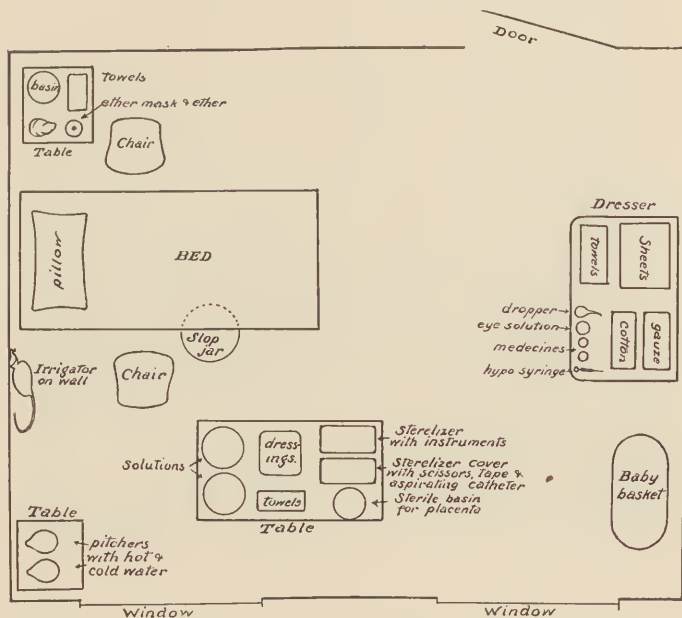 Door
basin
Towels
ether mask & ether
Table
Chair
pillow
BED
Slop
jar
Irrigator
on wall
Chair
Dresser
Towels
Sheets
dropper
eye solution
medecines
hypo syringe
cotton
gauze
Solutions
dress-
ings.
towels
Sterelizer
with instruments
Sterelizer cover
with scissors, Tape &
aspirating catheter
Sterile basin
for placenta
Table
Baby
basket
Table
pitchers
with hot &
cold water
Window
Window